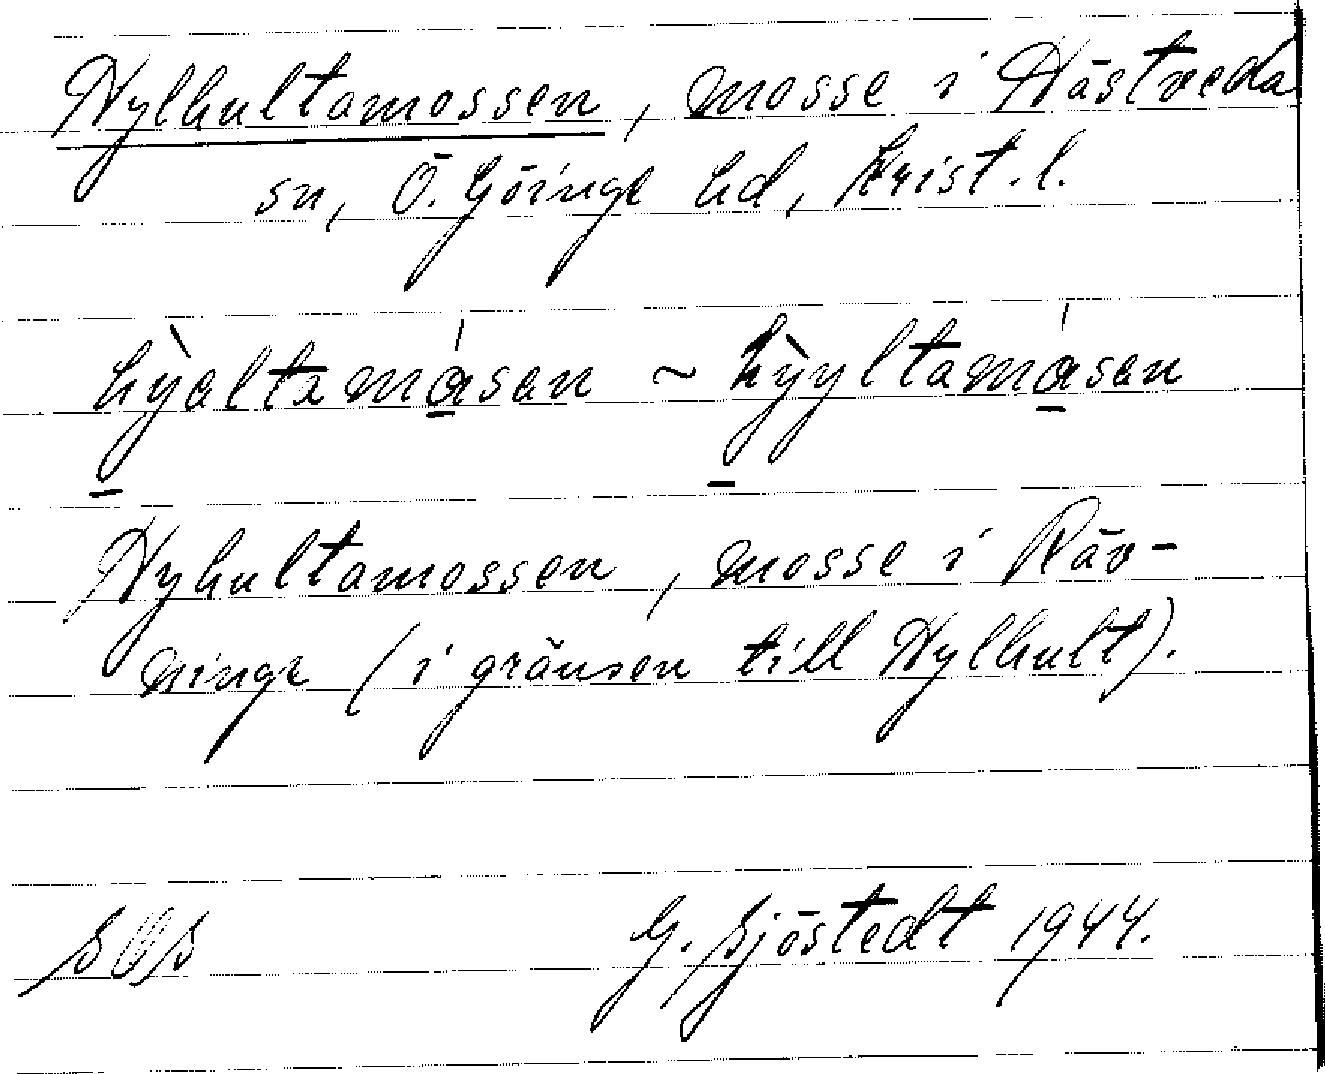 Hylhultamossen, mosse i Hästveda
sn, Ö. Göinge hd, Krist. l.
hỳøltamásen ~ hỳyltamásen
Hyhultamossen, mosse i Räv-
ninge (i gränsen till Hylhult).
G. Sjöstedt 1944.